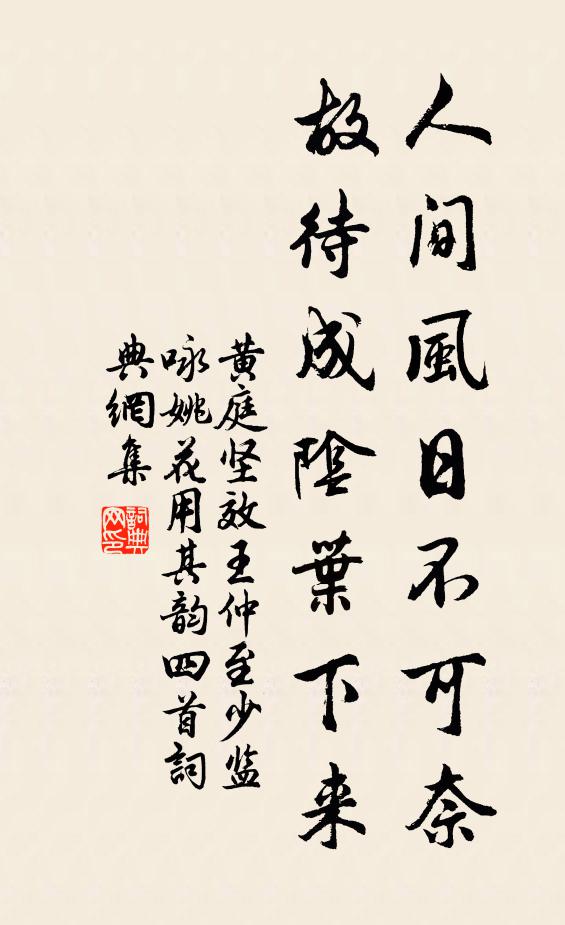 人间風日不可奈
故待成陰葉下来
黄庭坚效王仲至少监
咏姚花用其韵四首詞
典網集
詞典网印